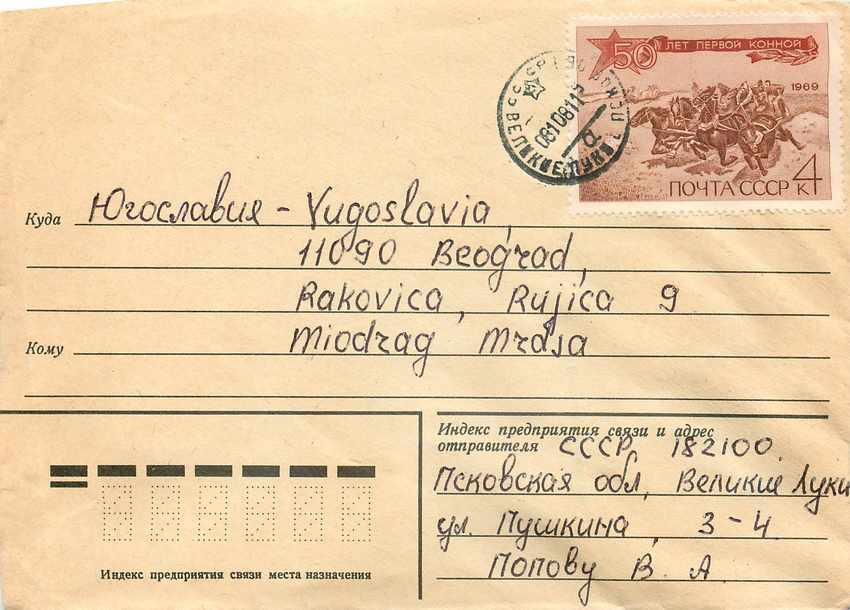 50 ЛЕТ ПЕРВОЙ КОННОЙ
1969
ПОЧТА СССР 4 К
СССР
0810811
ВЕЛИКИЕ ЛУКИ
Куда Югославия - Yugoslavia,
11090 Beograd,
Rakovica, Rujica 9
Кому Miodrag Mrdja
Индекс предприятия связи и адрес
отправителя СССР, 182100.
Псковская обл, Великие Луки
ул. Пушкина, 3-4.
Попову В. А
Индекс предприятия связи места назначения